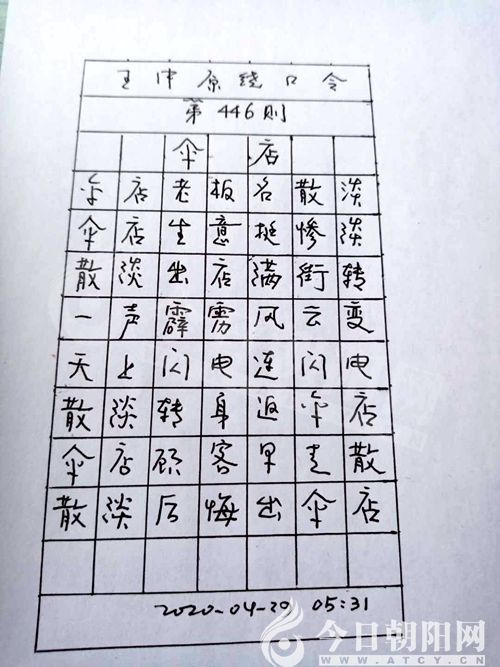 王中原绕口令
第446则
伞店
伞店老板名散淡
伞店生意挺惨淡
散淡出店满街转
一声霹雳风云变
天上闪电连闪电
散淡转身返伞店
伞店顾客早走散
散淡后悔出伞店
2020-04-20 05:31
今日朝阳网
WWW.ATCY.CN